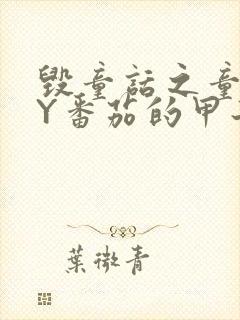 毁童话之童
Y番茄的甲
葉微青